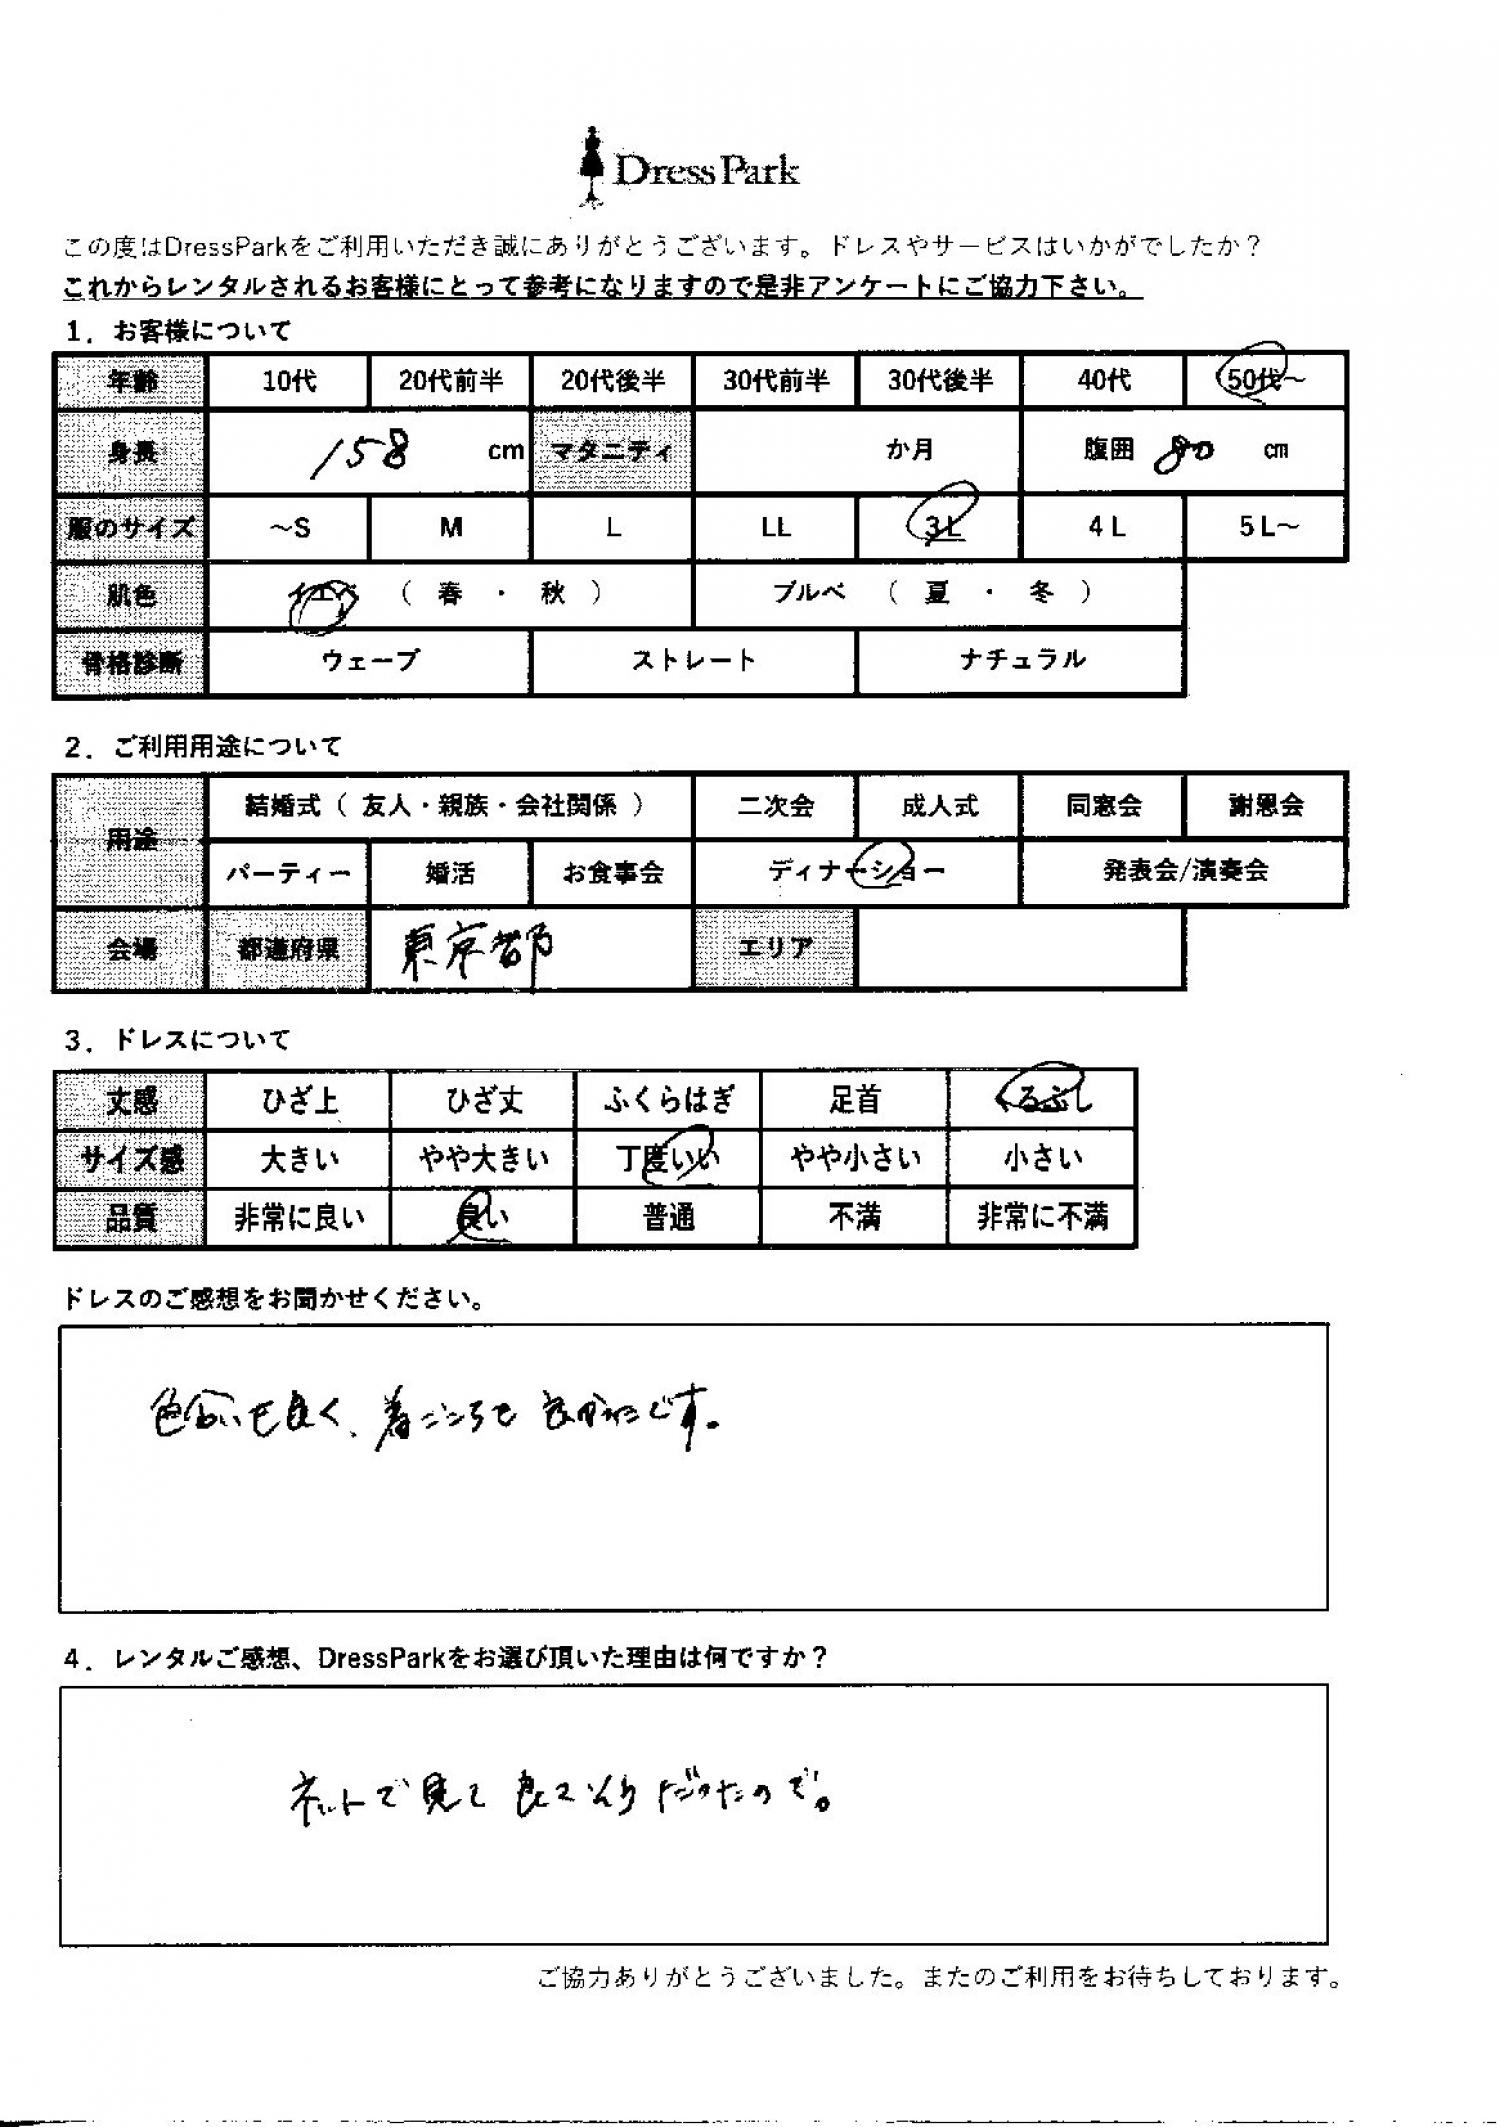 DressPark
この度はDressParkをご利用いただき誠にありがとうございます。ドレスやサービスはいかがでしたか？
これからレンタルされるお客様にとって参考になりますので是非アンケートにご協力下さい。
1．お客様について
年齢 10代 20代前半 20代後半 30代前半 30代後半 40代 50代～
身長 158 cm マタニティ か月 腹囲 80 cm
服のサイズ ～S M L LL 3L 4L 5L～
肌色 イエベ （ 春 ・ 秋 ） ブルベ （ 夏 ・ 冬 ）
骨格診断 ウェーブ ストレート ナチュラル
2．ご利用用途について
用途 結婚式（ 友人・親族・会社関係 ） 二次会 成人式 同窓会 謝恩会
パーティー 婚活 お食事会 ディナーショー 発表会/演奏会
会場 都道府県 東京都 エリア
3．ドレスについて
丈感 ひざ上 ひざ丈 ふくらはぎ 足首 くるぶし
サイズ感 大きい やや大きい 丁度いい やや小さい 小さい
品質 非常に良い 良い 普通 不満 非常に不満
ドレスのご感想をお聞かせください。
色合いも良く、着ごこちも良かったです。
4．レンタルご感想、DressParkをお選び頂いた理由は何ですか？
ネットで見て良さそうだったので。
ご協力ありがとうございました。またのご利用をお待ちしております。